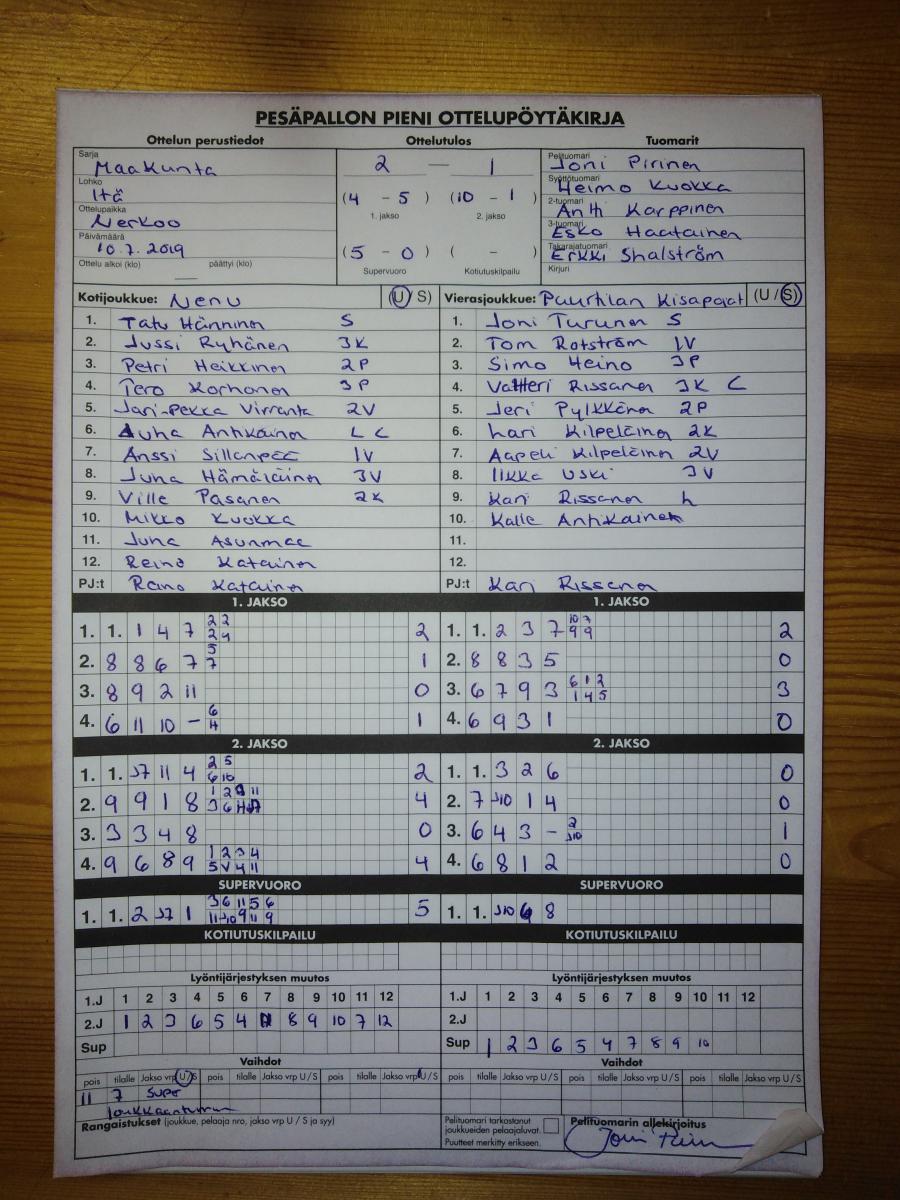 PESÄPALLON PIENI OTTELUPÖYTÄKIRJA
Ottelun perustiedot Ottelutulos Tuomarit
Sarja Maakunta
Lohko Itä
Ottelupaikka Nerkoo
Päivämäärä 10.7.2019
Ottelu alkoi (klo) päättyi (klo)
2 — 1
(4 - 5) (10 - 1)
1. jakso 2. jakso
(5 - 0) ( - )
Supervuoro Kotiutuskilpailu
Pelituomari Joni Pirinen
Syöttötuomari Heimo Kuokka
2-tuomari Antti Karppinen
3-tuomari Esko Haatainen
Takarajatuomari Erkki Shalström
Kirjuri
Kotijoukkue: Nenu (U / S) Vierasjoukkue: Puurtilan Kisapojat (U / S)
1. Tatu Hänninen S 1. Joni Turunen S
2. Jussi Ryhänen 3K 2. Tom Rotström 1V
3. Petri Heikkinen 2P 3. Simo Heino 3P
4. Tero Korhonen 3P 4. Valtteri Rissanen 3K C
5. Jari-Pekka Virranta 2V 5. Jeri Pylkkänen 2P
6. Juha Antikainen L C 6. Lari Kilpeläinen 2K
7. Anssi Sillanpää 1V 7. Aapeli Kilpeläinen 2V
8. Juha Hämäläinen 3V 8. Ilkka Uski 3V
9. Ville Pasanen 2K 9. Kari Rissanen L
10. Mikko Kuokka 10. Kalle Antikainen
11. Juha Asunmaa 11.
12. Reino Katainen 12.
PJ:t Reino Katainen PJ:t Kari Rissanen
1. JAKSO 1. JAKSO
1. 1. 1 4 7 2 2 2 4 2 1. 1. 2 3 7 10 7 9 9 2
2. 8 8 6 7 5 7 1 2. 8 8 3 5 0
3. 8 9 2 11 0 3. 6 7 9 3 6 1 2 1 4 5 3
4. 6 11 10 – 6 4 1 4. 6 9 3 1 0
2. JAKSO 2. JAKSO
1. 1. J7 11 4 2 5 6 10 2 1. 1. 3 2 6 0
2. 9 9 1 8 4 2. 7 J10 1 4 0
3. 3 3 4 8 0 3. 6 4 3 – 2 J10 1
4. 9 6 8 9 1 2 3 4 5 V 4 11 4 4. 6 8 1 2 0
SUPERVUORO SUPERVUORO
1. 1. 2 J7 1 3 6 11 5 6 11 J10 9 11 9 5 1. 1. J10 6 8
KOTIUTUSKILPAILU KOTIUTUSKILPAILU
Lyöntijärjestyksen muutos Lyöntijärjestyksen muutos
1.J 1 2 3 4 5 6 7 8 9 10 11 12 1.J 1 2 3 4 5 6 7 8 9 10 11 12
2.J 1 2 3 6 5 4 11 8 9 10 7 12 2.J
Sup Sup 1 2 3 6 5 4 7 8 9 10
Vaihdot Vaihdot
pois tilalle Jakso vrp U/S pois tilalle Jakso vrp U / S pois tilalle Jakso vrp U / S pois tilalle Jakso vrp U / S pois tilalle Jakso vrp U / S pois tilalle Jakso vrp U / S
11 7 super
Rangaistukset (joukkue, pelaaja nro, jakso vrp U / S ja syy)
Pelituomari tarkastanut
joukkueiden pelaajaluvat.
Puutteet merkitty erikseen.
Pelituomarin allekirjoitus